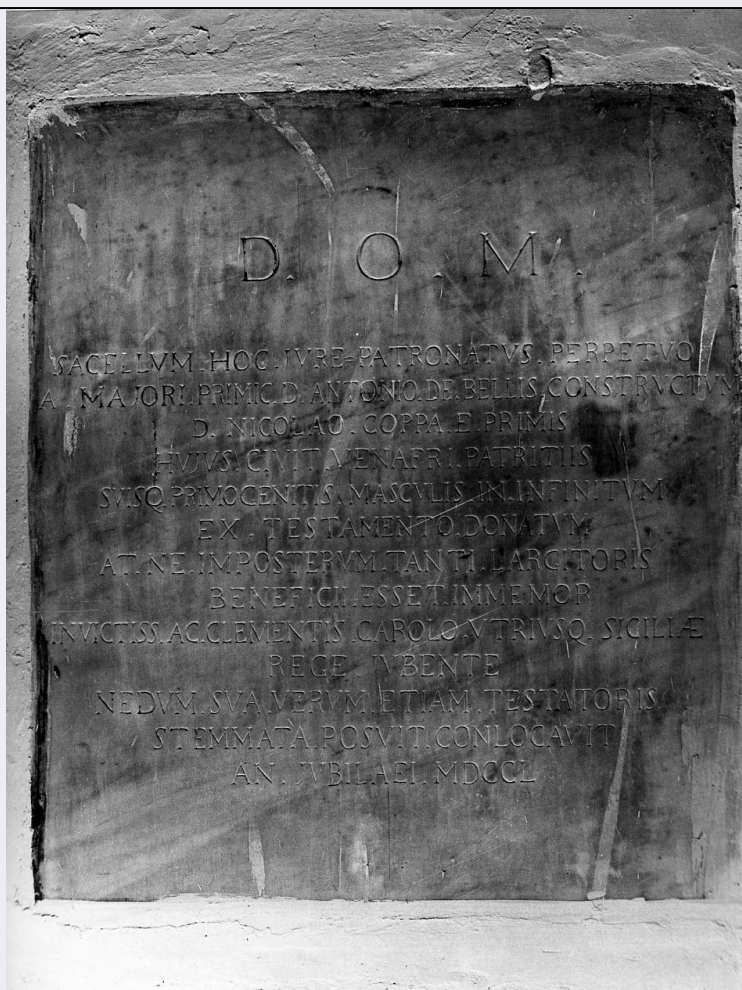 D. O. M.
SACELLVM.HOC.IVRE=PATRONATVS.PERPETVO
A MAJORI.PRIMIC.D.ANTONIO.DE.BELLIS.CONSTRVCTVM
D. NICOLAO.COPPA.E.PRIMIS
HVJVS.CIVIT.VENAFRI.PATRITIIS
SVISQ.PRIMOGENITIS.MASCVLIS.IN.INFINITVM
EX.TESTAMENTO.DONATVM
AT.NE.IMPOSTERVM.TANTI.LARGITORIS
BENEFICII.ESSET.IMMEMOR
INVICTISS.AC.CLEMENTIS.CAROLO.VTRIVSQ.SICILIÆ
REGE.IVBENTE
NEDVM.SVA.VERVM.ETIAM.TESTATORIS
STEMMATA.POSVIT.CONLOCAVIT
AN.IVBILAEI.MDCCL